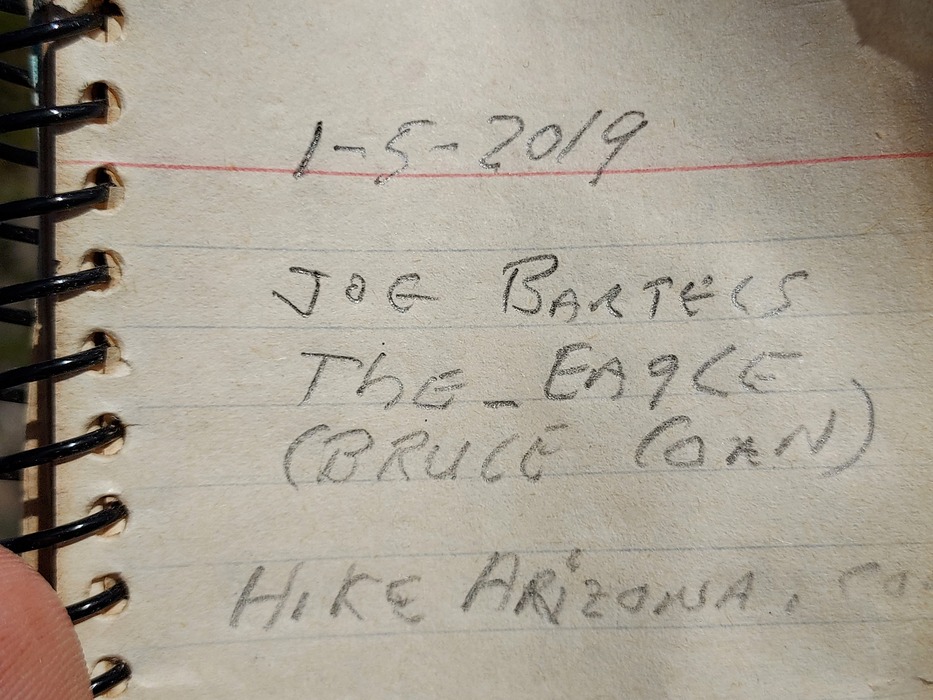 1-5-2019
JOE BARTELS
ThE_EAgLE
(BRUCE COAN)
HIKE ARiZONA.CO